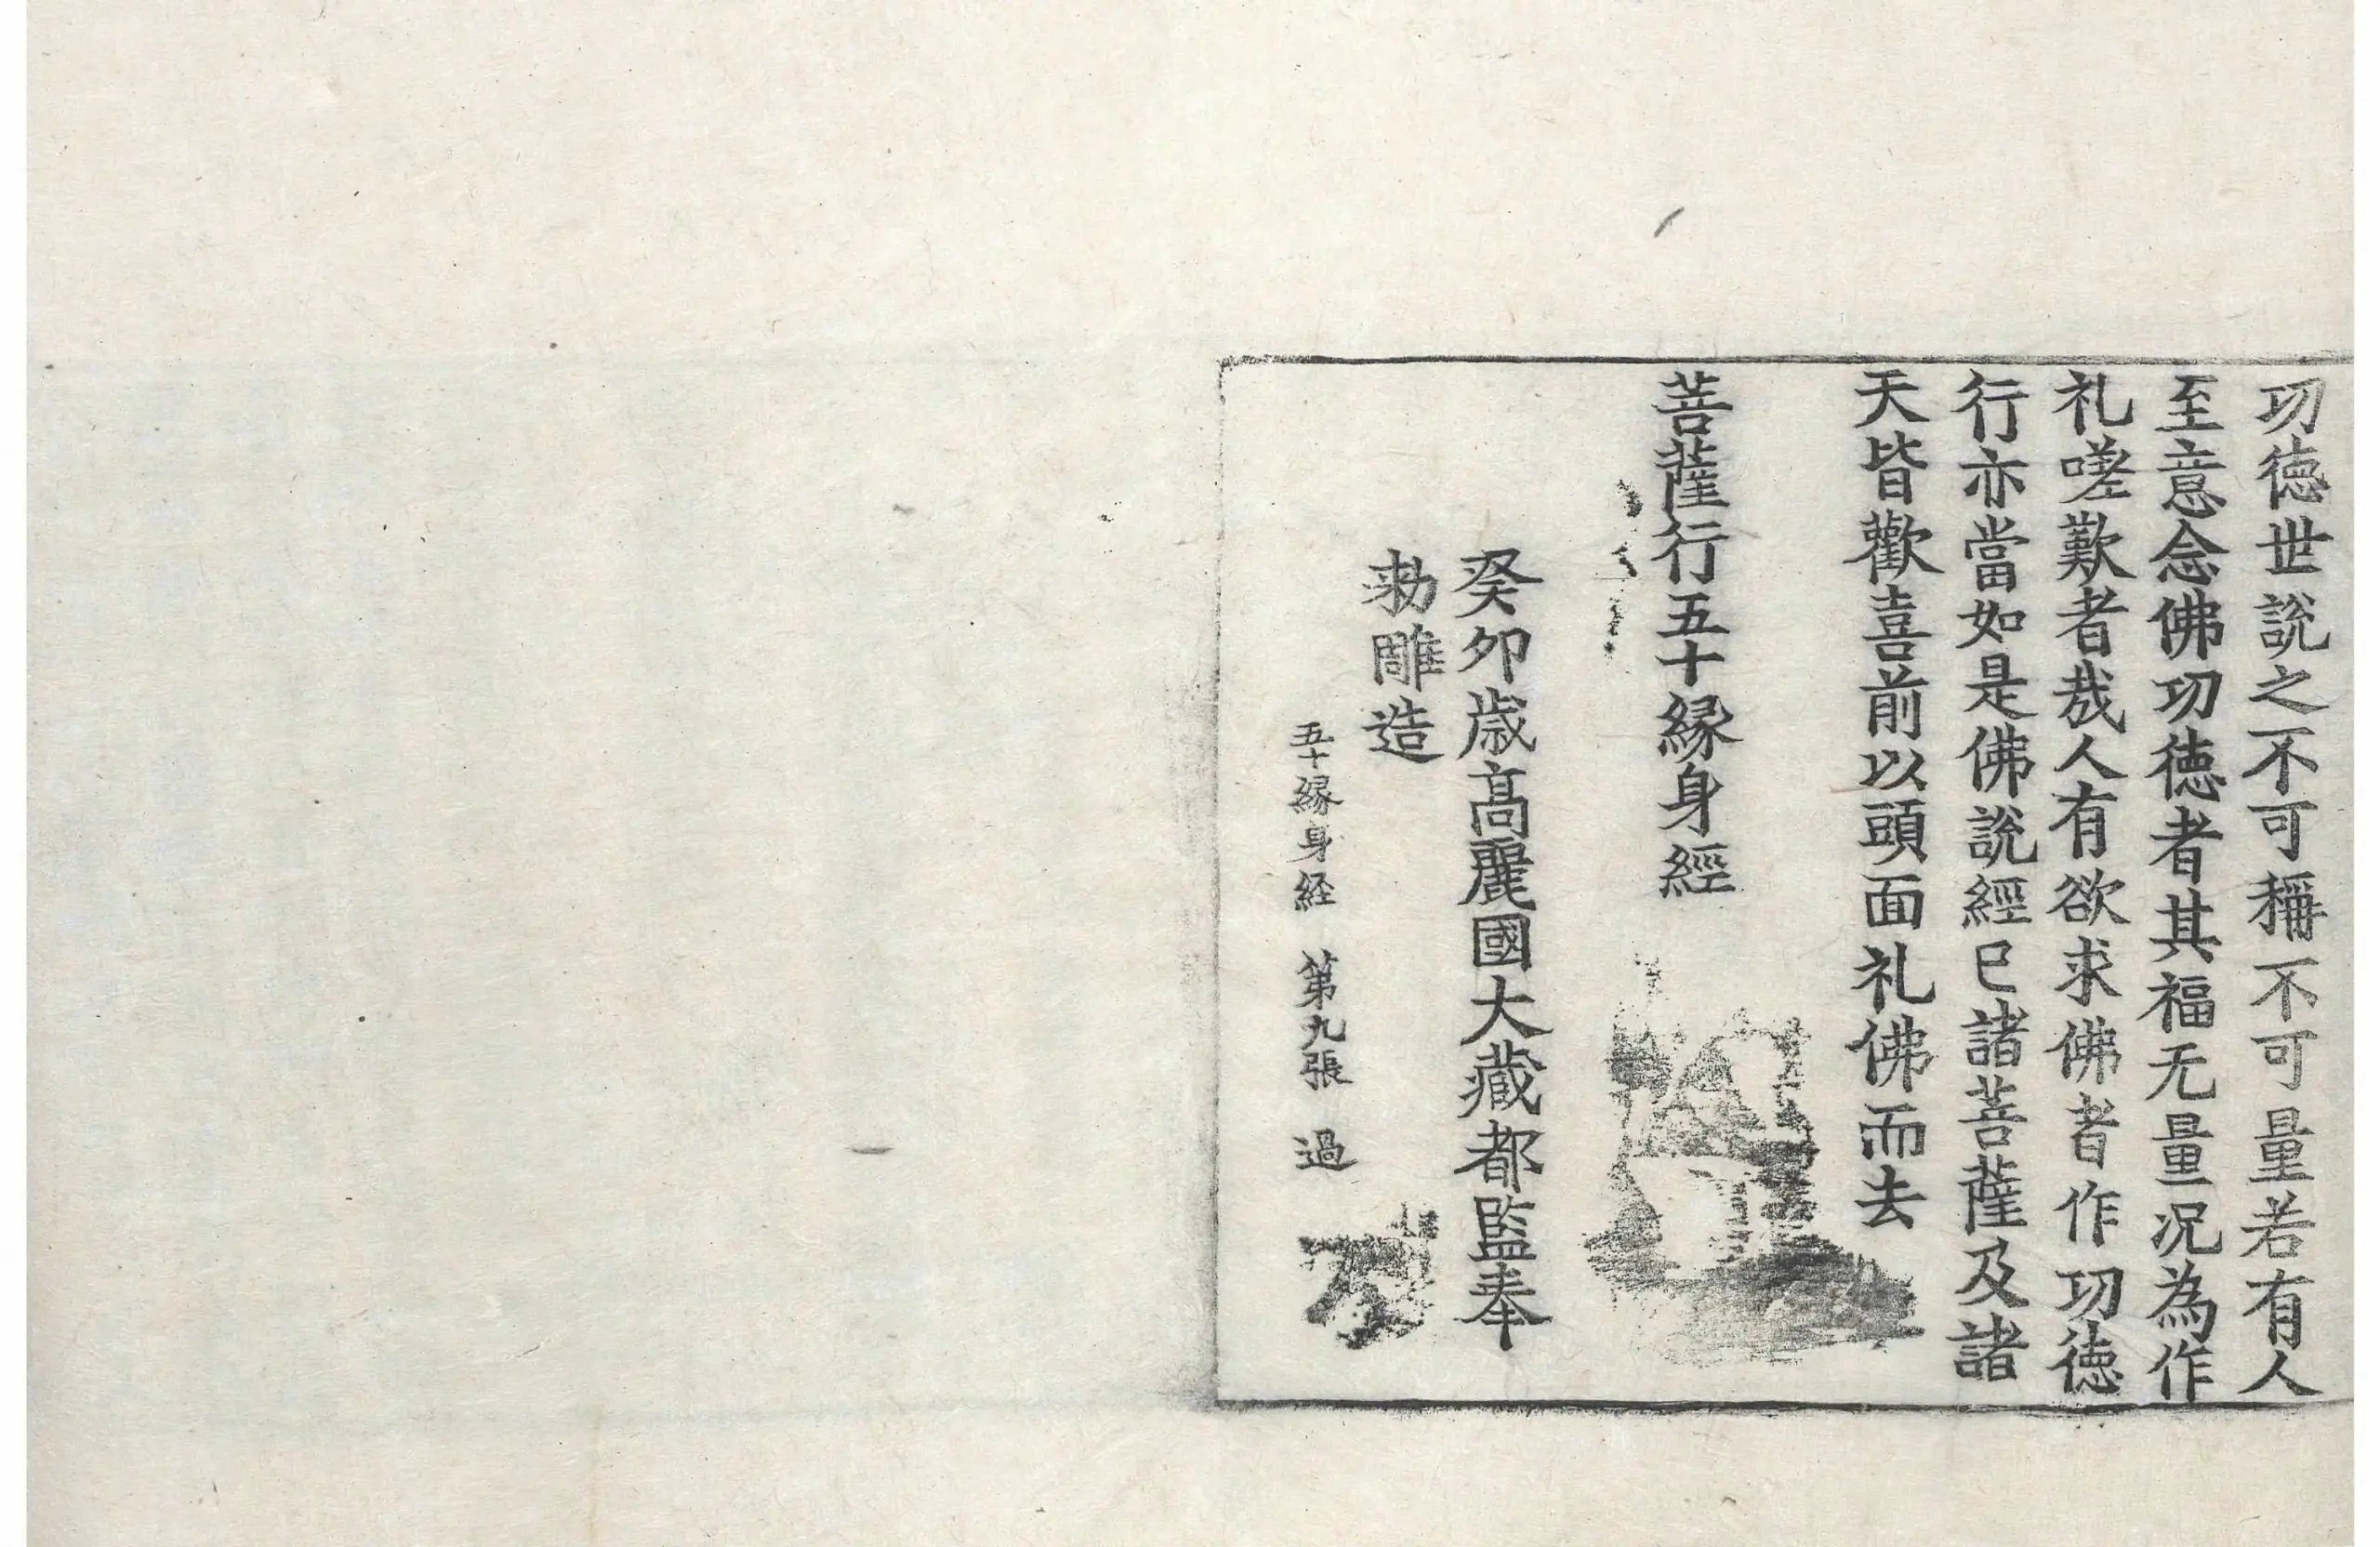 功徳世說之不可稱不可量若有人
至意念佛功徳者其福无量况為作
礼嗟歎者㢤人有欲求佛者作功徳
行亦當如是佛說經已諸菩薩及諸
天皆歡喜前以頭面礼佛而去
菩薩行五十緣身經
癸卯歳髙麗國大藏都監奉
勑雕造
五十緣身経 第九張 過